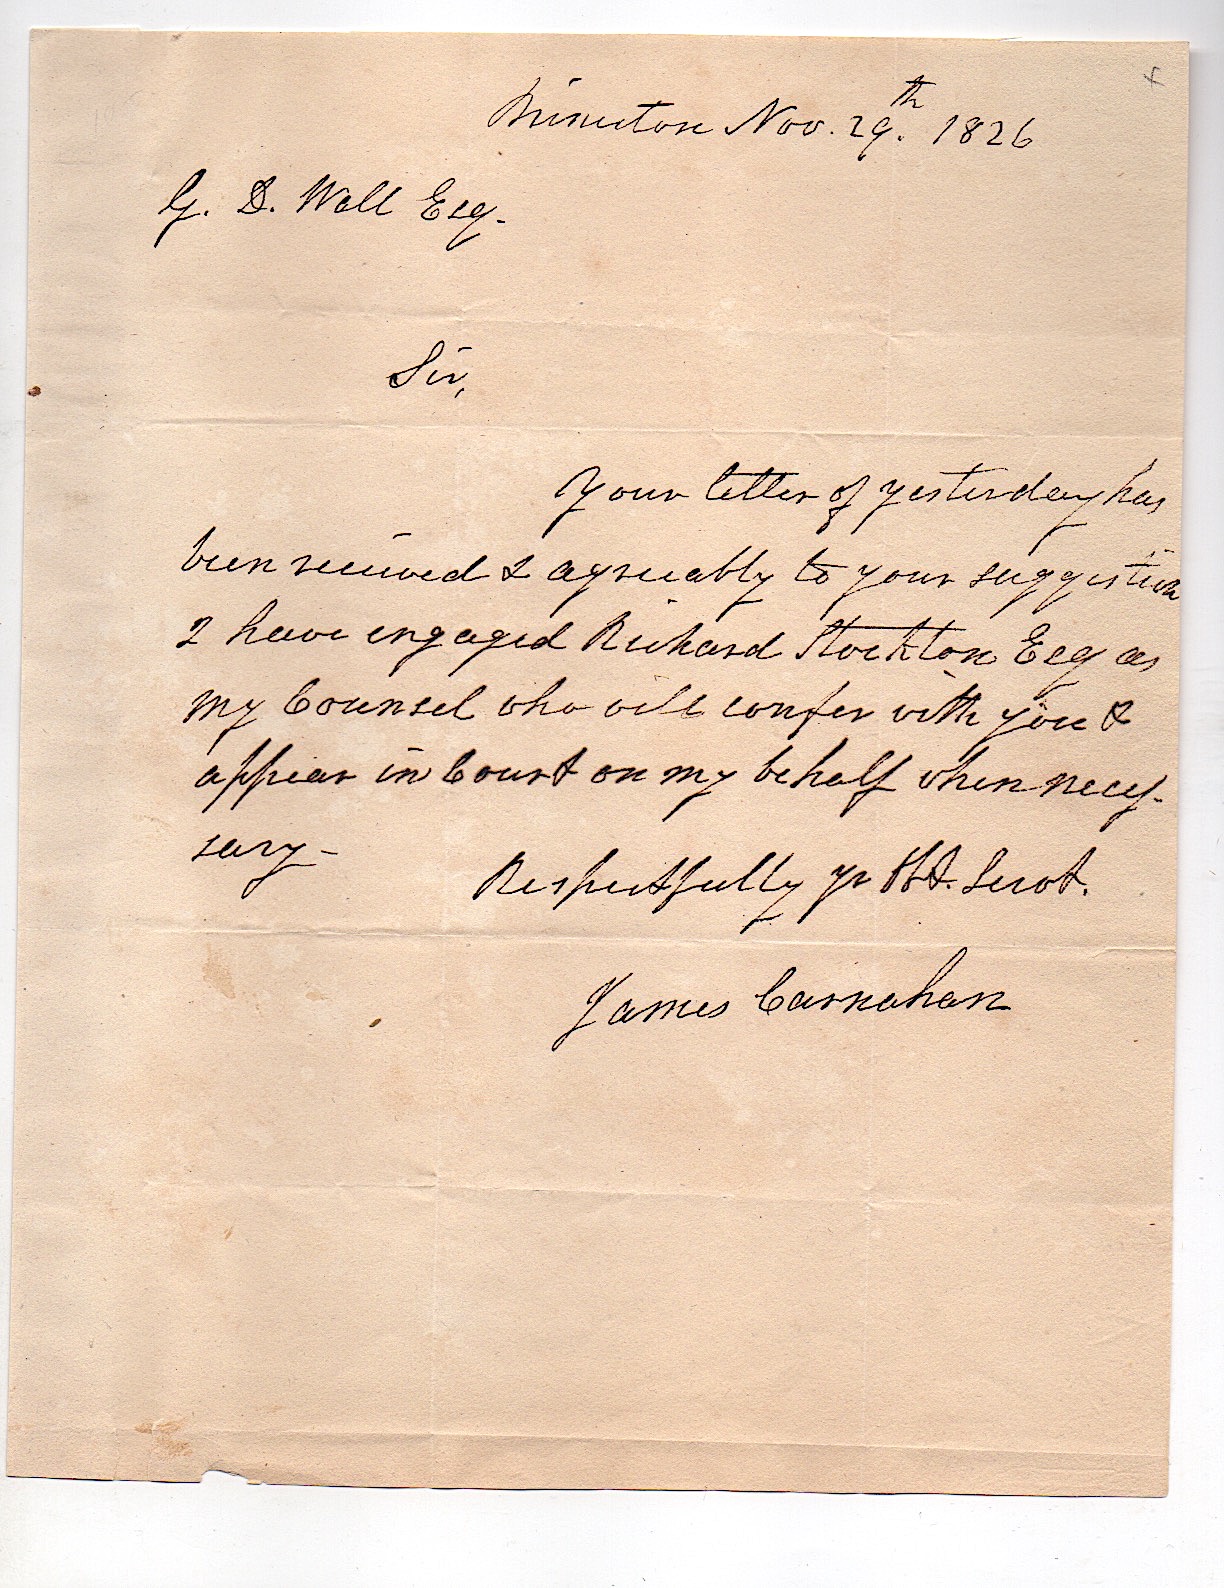 Princeton Nov. 29th. 1826
G. D. Wall Esq.
Sir,
Your letter of yesterday has
been received & agreeably to your suggestion
I have engaged Richard Stockton Esq as
my Counsel who will confer with you &
appear in Court on my behalf when neces-
sary-
Respectfully yr Obt. Servt.
James Carnahan